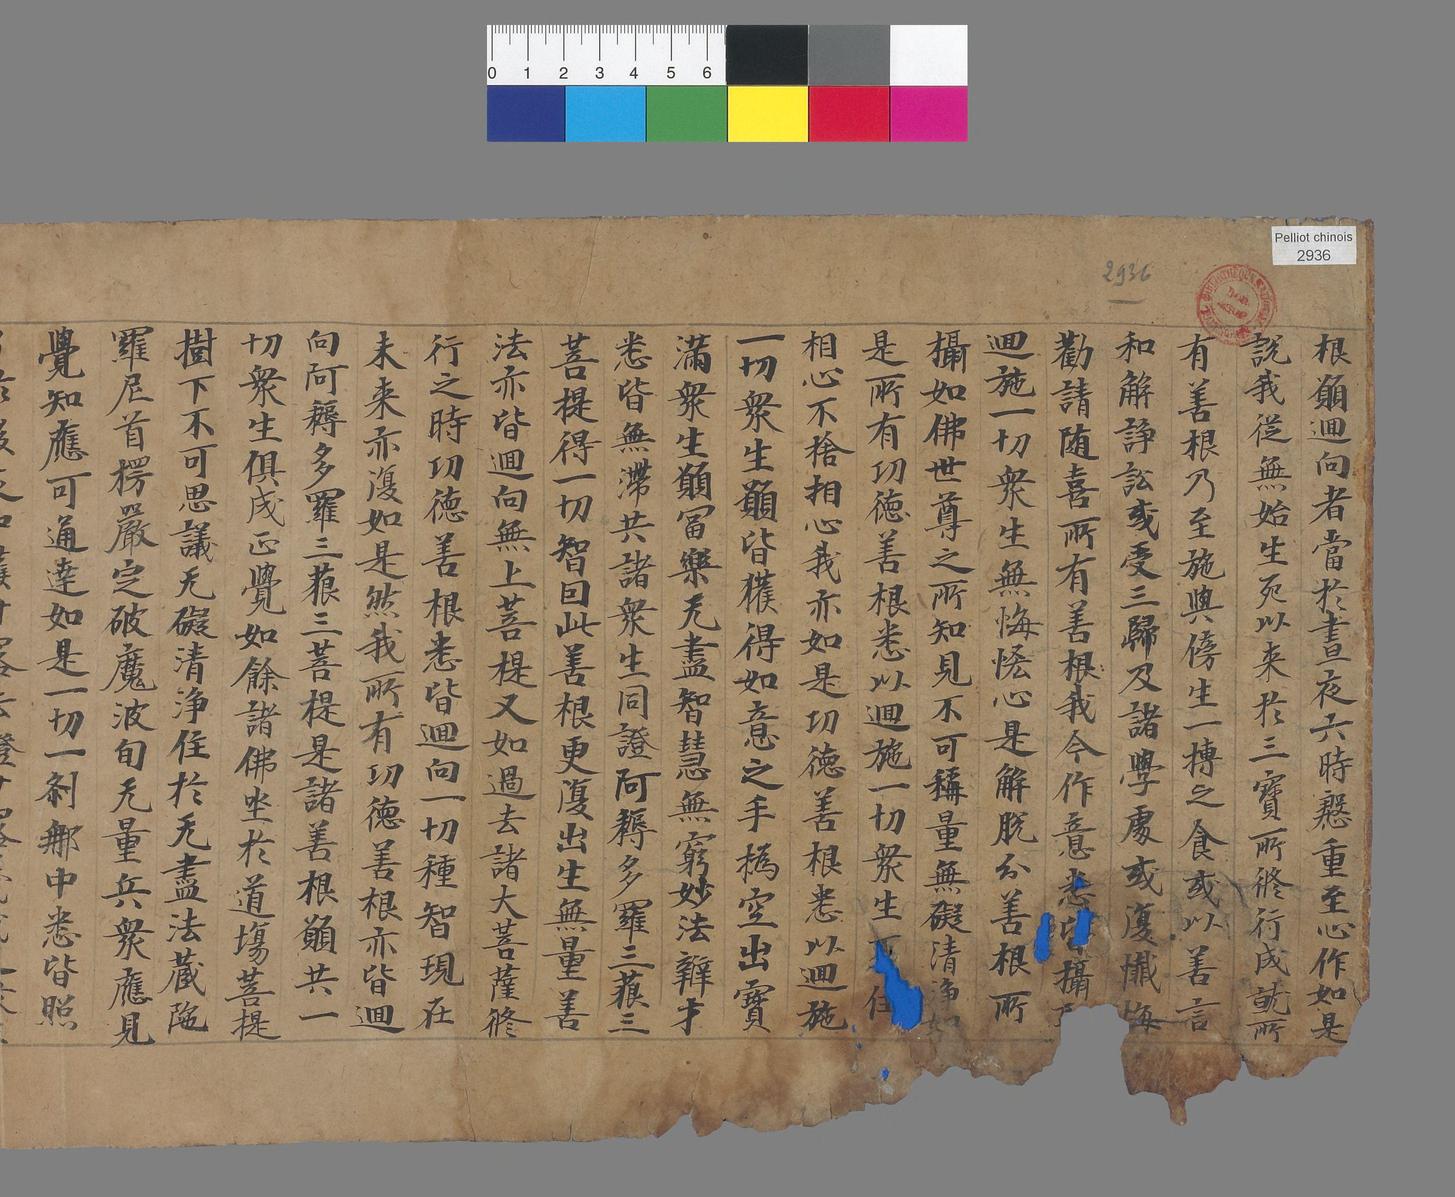 0 1 2 3 4 5 6
Pelliot chinois
2936
2936
根願迴向者當於晝夜六時慇重至心作如是
說我從無始生死以来於三寶所脩行成就所
有善根乃至施與傍生一摶之食或以善言
和解諍訟或受三歸及諸學處或復懺悔
勸請随喜所有善根我今作意悉皆攝
迴施一切衆生無悔悋心是解脫分善根所
攝如佛世尊之所知見不可稱量無礙清淨如
是所有功德善根悉以迴施一切衆生 住
相心不捨相心我亦如是功德善根悉以迴施
一切衆生願皆獲得如意之手撝空出寶
滿衆生願冨樂无盡智慧無窮妙法辯才
悉皆無滯共諸衆生同證阿耨多羅三藐三
菩提得一切智回此善根更復出生無量善
法亦皆迴向無上菩提又如過去諸大菩薩脩
行之時功德善根悉皆迴向一切種智現在
未来亦復如是然我所有功德善根亦皆迴
向阿耨多羅三藐三菩提是諸善根願共一
切衆生俱成正覺如餘諸佛坐於道場菩提
樹下不可思議无礙清淨住於无盡法蔵陁
羅尼首楞嚴定破魔波旬无量兵衆應見
覺知應可通達如是一切一剎那中悉皆照